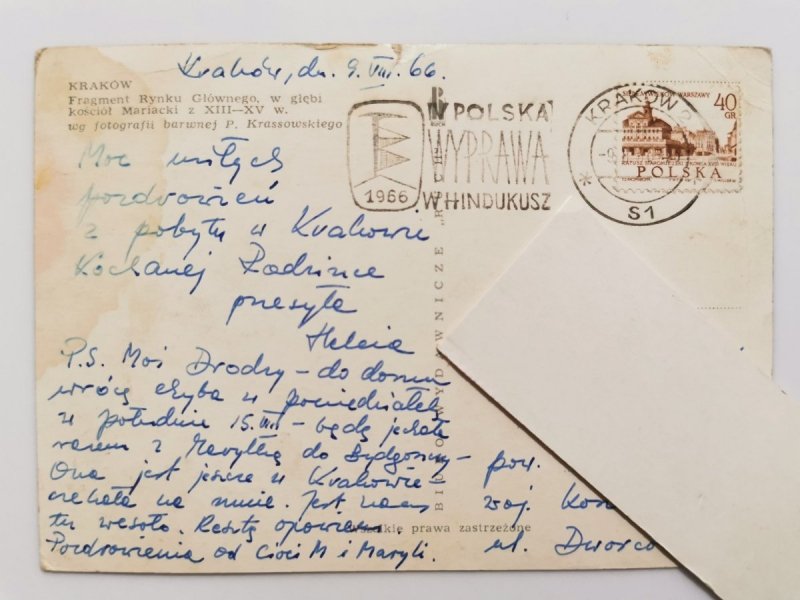 Kraków, dn. 9.VIII.66.
KRAKÓW
Fragment Rynku Głównego, w głębi
kościół Mariacki z XIII—XV w.
wg fotografii barwnej P. Krassowskiego
Moc miłych
pozdrowień
z pobytu w Krakowie
Kochanej Rodzince
przesyła
Helcia
P.S. Moi Drodzy - do domu
wrócę chyba w poniedziałek
w południe 15.VIII - będę jechała
razem z Marylką do Bydgoszczy -
Ona jest jeszcze w Krakowie -
czekała na mnie. Jest nam
tu wesoło. Resztę opowiem.
Pozdrowienia od Cioci M i Maryli.
BIURO WYDAWNICZE „RUCH"
RUCH
Wszelkie prawa zastrzeżone
1966
POLSKA
WYPRAWA
W HINDUKUSZ
KRAKÓW 2
S1
40
GR
POLSKA
pow.
woj. Kos
ul. Dworco